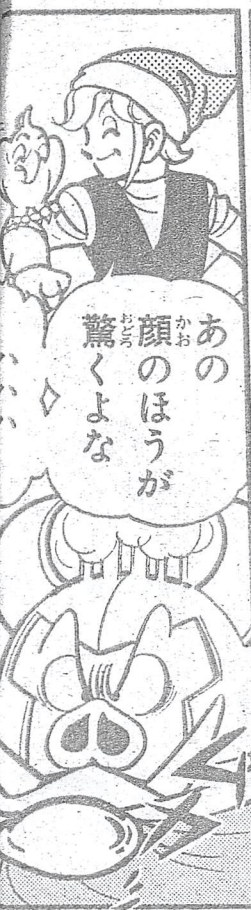 あの
顔のほうが
驚くよな